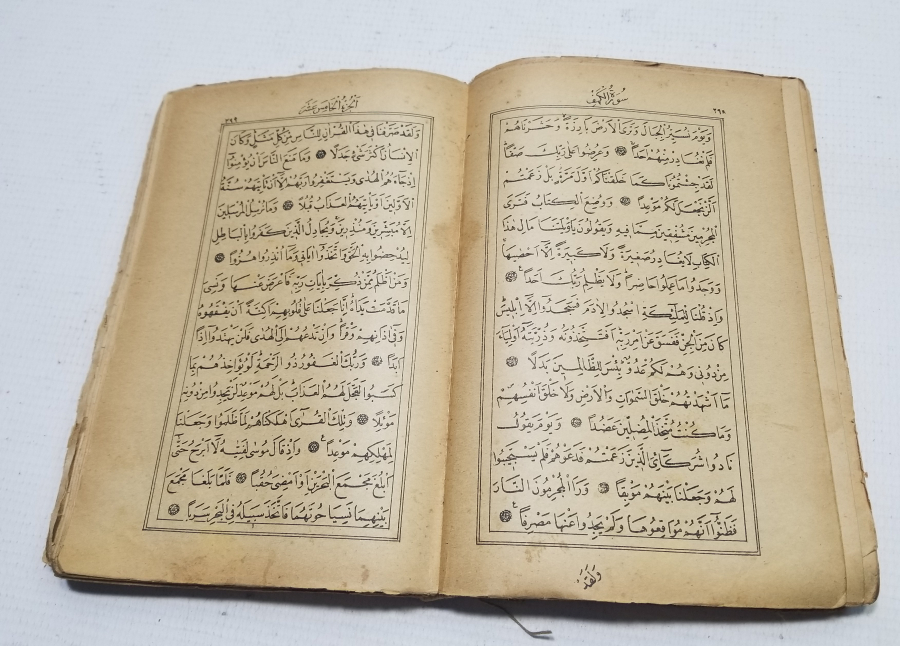 سُورَةُ الْكَهْفِ
٢٦٨
وَيَوْمَ نُسَيِّرُ الْجِبَالَ وَتَرَى الْاَرْضَ بَارِزَةً وَحَشَرْنَاهُمْ
فَلَمْ نُغَادِرْ مِنْهُمْ اَحَدًا وَعُرِضُوا عَلٰى رَبِّكَ صَفًّا
لَقَدْ جِئْتُمُونَا كَمَا خَلَقْنَاكُمْ اَوَّلَ مَرَّةٍ بَلْ زَعَمْتُمْ
اَلَّنْ نَجْعَلَ لَكُمْ مَوْعِدًا وَوُضِعَ الْكِتَابُ فَتَرَى
الْمُجْرِمِينَ مُشْفِقِينَ مِمَّا فِيهِ وَيَقُولُونَ يَاوَيْلَتَنَا مَالِ هٰذَا
الْكِتَابِ لَا يُغَادِرُ صَغِيرَةً وَلَا كَبِيرَةً اِلَّا اَحْصٰيهَا
وَوَجَدُوا مَا عَمِلُوا حَاضِرًا وَلَا يَظْلِمُ رَبُّكَ اَحَدًا
وَاِذْ قُلْنَا لِلْمَلٰٓئِكَةِ اسْجُدُوا لِاٰدَمَ فَسَجَدُوا اِلَّا اِبْلِيسَ
كَانَ مِنَ الْجِنِّ فَفَسَقَ عَنْ اَمْرِ رَبِّهِ اَفَتَتَّخِذُونَهُ وَذُرِّيَّتَهُ اَوْلِيَاءَ
مِنْ دُونِي وَهُمْ لَكُمْ عَدُوٌّ بِئْسَ لِلظَّالِمِينَ بَدَلًا
مَا اَشْهَدْتُهُمْ خَلْقَ السَّمٰوَاتِ وَالْاَرْضِ وَلَا خَلْقَ اَنْفُسِهِمْ
وَمَا كُنْتُ مُتَّخِذَ الْمُضِلِّينَ عَضُدًا وَيَوْمَ يَقُولُ
نَادُوا شُرَكَائِيَ الَّذِينَ زَعَمْتُمْ فَدَعَوْهُمْ فَلَمْ يَسْتَجِيبُوا
لَهُمْ وَجَعَلْنَا بَيْنَهُمْ مَوْبِقًا وَرَاَ الْمُجْرِمُونَ النَّارَ
فَظَنُّوا اَنَّهُمْ مُوَاقِعُوهَا وَلَمْ يَجِدُوا عَنْهَا مَصْرِفًا
وَلَقَدْ
اَلْجُزْءُ الْخَامِسَ عَشَرَ
٢٦٩
وَلَقَدْ صَرَّفْنَا فِي هٰذَا الْقُرْاٰنِ لِلنَّاسِ مِنْ كُلِّ مَثَلٍ وَكَانَ
الْاِنْسَانُ اَكْثَرَ شَيْءٍ جَدَلًا وَمَا مَنَعَ النَّاسَ اَنْ يُؤْمِنُوا
اِذْ جَاءَهُمُ الْهُدٰى وَيَسْتَغْفِرُوا رَبَّهُمْ اِلَّا اَنْ تَاْتِيَهُمْ سُنَّةُ
الْاَوَّلِينَ اَوْ يَاْتِيَهُمُ الْعَذَابُ قُبُلًا وَمَا نُرْسِلُ الْمُرْسَلِينَ
اِلَّا مُبَشِّرِينَ وَمُنْذِرِينَ وَيُجَادِلُ الَّذِينَ كَفَرُوا بِالْبَاطِلِ
لِيُدْحِضُوا بِهِ الْحَقَّ وَاتَّخَذُوا اٰيَاتِي وَمَا اُنْذِرُوا هُزُوًا
وَمَنْ اَظْلَمُ مِمَّنْ ذُكِّرَ بِاٰيَاتِ رَبِّهِ فَاَعْرَضَ عَنْهَا وَنَسِيَ
مَا قَدَّمَتْ يَدَاهُ اِنَّا جَعَلْنَا عَلٰى قُلُوبِهِمْ اَكِنَّةً اَنْ يَفْقَهُوهُ
وَفِي اٰذَانِهِمْ وَقْرًا وَاِنْ تَدْعُهُمْ اِلَى الْهُدٰى فَلَنْ يَهْتَدُوا اِذًا
اَبَدًا وَرَبُّكَ الْغَفُورُ ذُو الرَّحْمَةِ لَوْ يُؤَاخِذُهُمْ بِمَا
كَسَبُوا لَعَجَّلَ لَهُمُ الْعَذَابَ بَلْ لَهُمْ مَوْعِدٌ لَنْ يَجِدُوا مِنْ دُونِهِ
مَوْئِلًا وَتِلْكَ الْقُرٰى اَهْلَكْنَاهُمْ لَمَّا ظَلَمُوا وَجَعَلْنَا
لِمَهْلِكِهِمْ مَوْعِدًا وَاِذْ قَالَ مُوسٰى لِفَتٰيهُ لَا اَبْرَحُ حَتّٰى
اَبْلُغَ مَجْمَعَ الْبَحْرَيْنِ اَوْ اَمْضِيَ حُقُبًا فَلَمَّا بَلَغَا مَجْمَعَ
بَيْنِهِمَا نَسِيَا حُوتَهُمَا فَاتَّخَذَ سَبِيلَهُ فِي الْبَحْرِ سَرَبًا